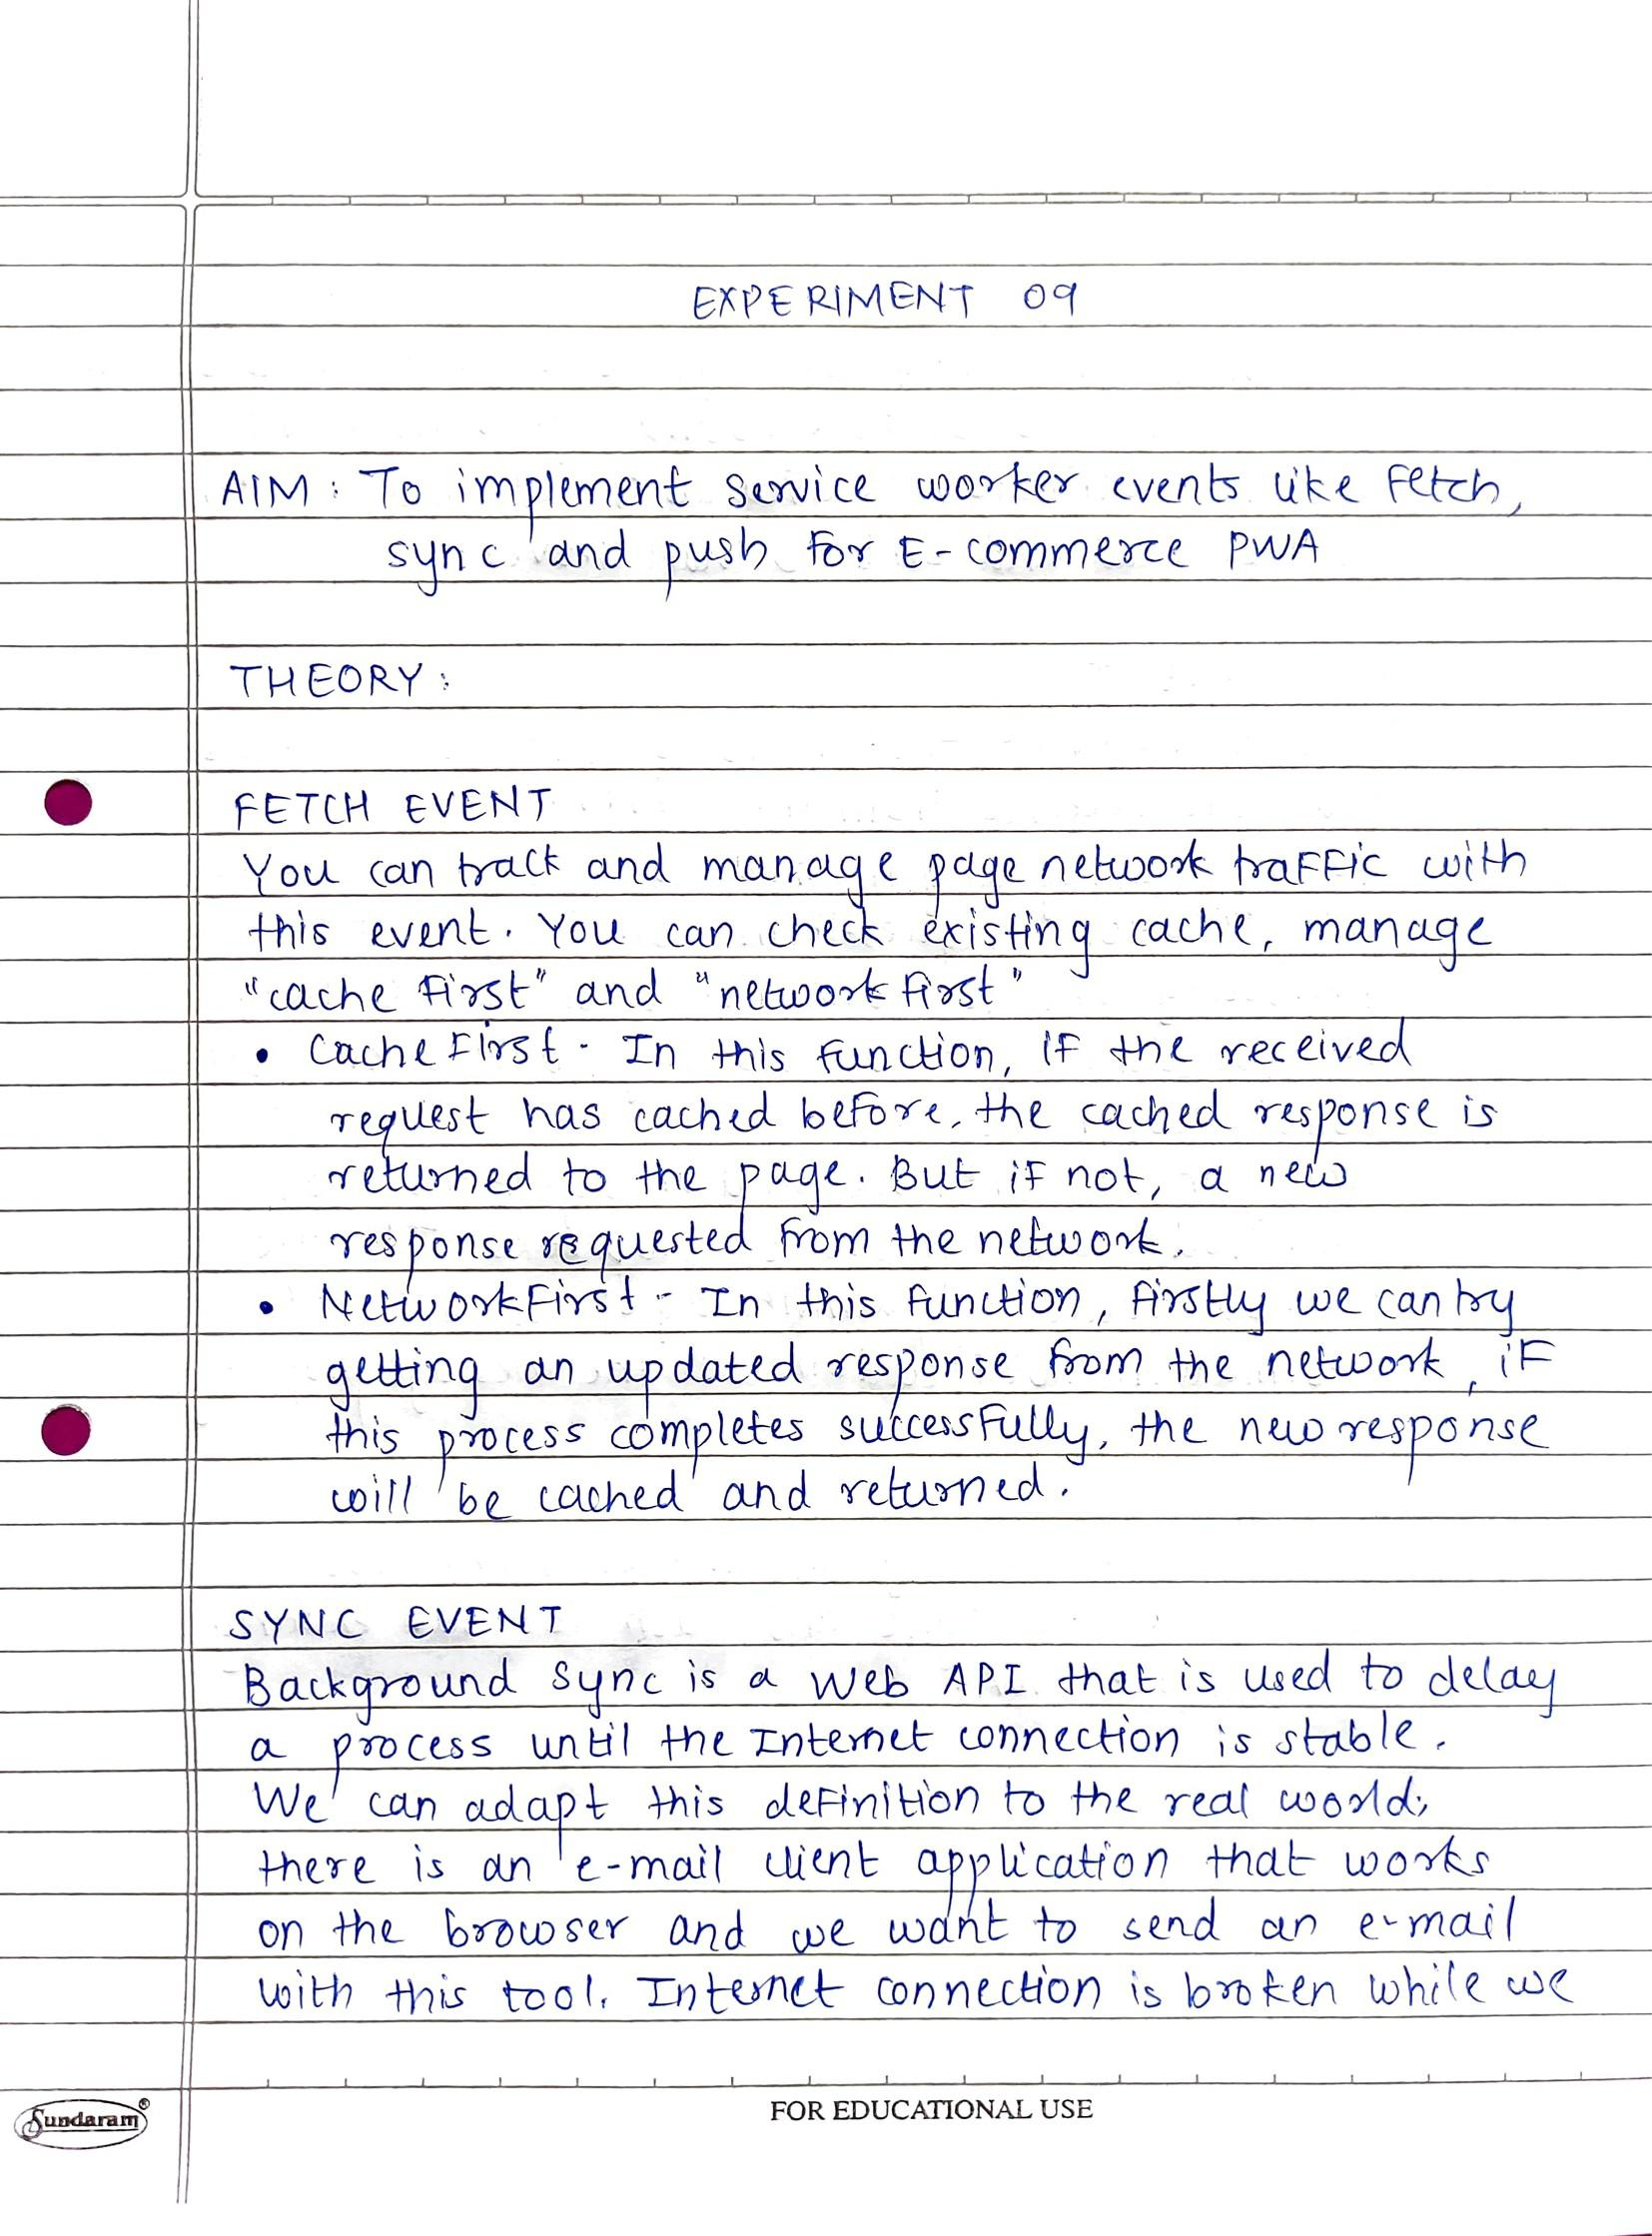 EXPERIMENT 09
AIM : To implement service worker events like Fetch,
sync and push for E-commerce PWA
THEORY :
FETCH EVENT
You can track and manage page network traffic with
this event. You can check existing cache, manage
"cache first" and "network first"
• CacheFirst - In this function, if the received
request has cached before, the cached response is
returned to the page. But if not, a new
response requested from the network.
• NetworkFirst - In this function, firstly we can try
getting an updated response from the network, if
this process completes successfully, the new response
will be cached and returned.
SYNC EVENT
Background Sync is a Web API that is used to delay
a process until the Internet connection is stable.
We can adapt this definition to the real world;
there is an e-mail client application that works
on the browser and we want to send an e-mail
with this tool. Internet connection is broken while we
Sundaram®
FOR EDUCATIONAL USE